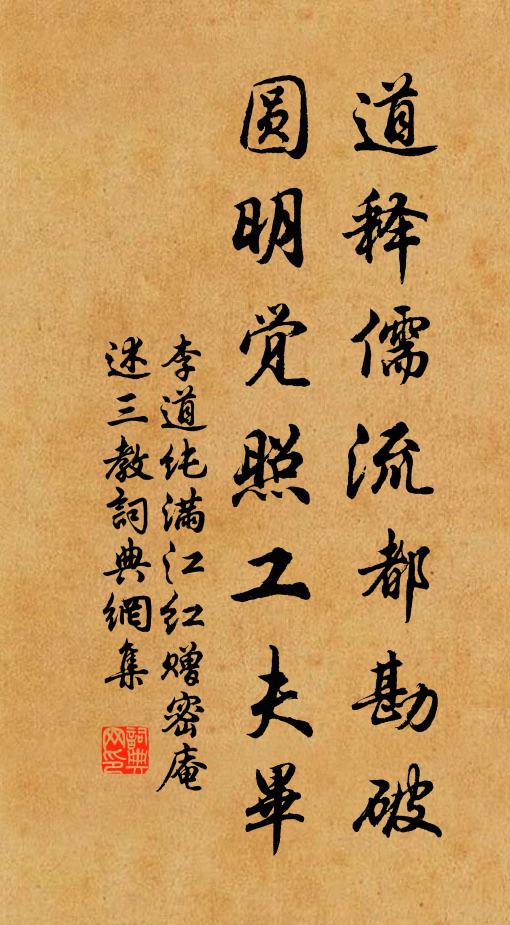 道释儒流都勘破
圆明觉照工夫畢
李道纯满江红赠密庵
述三教詞典網集
詞典網印